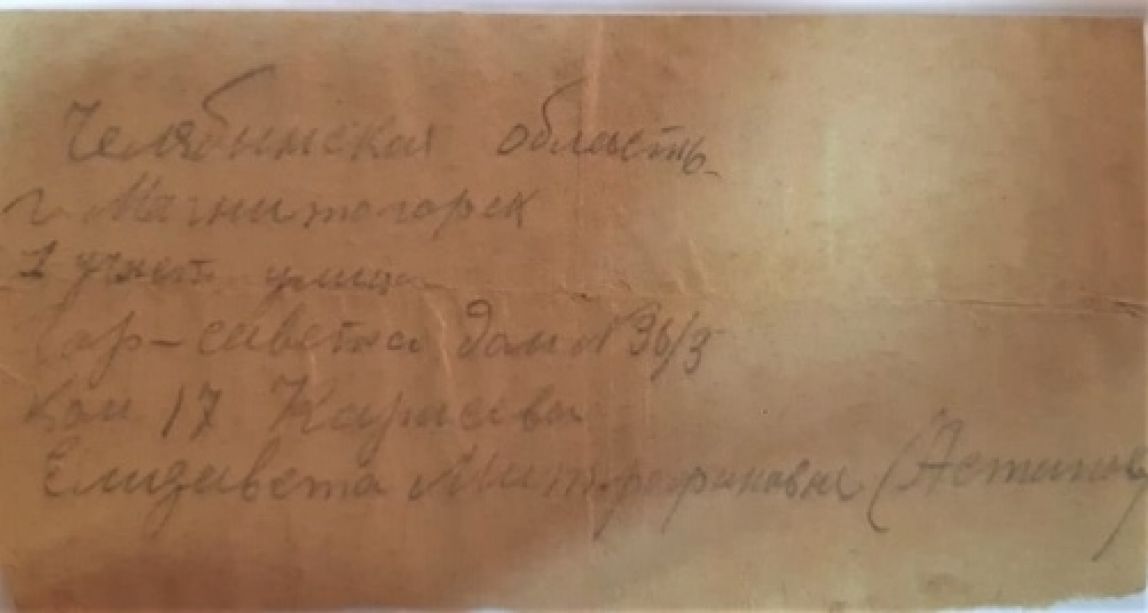 Челябинская область
г. Магнитогорск
1 участ. улица
Гор-совета дом № 36/3
ком 17 Карасева
Елизавета Митрофановна